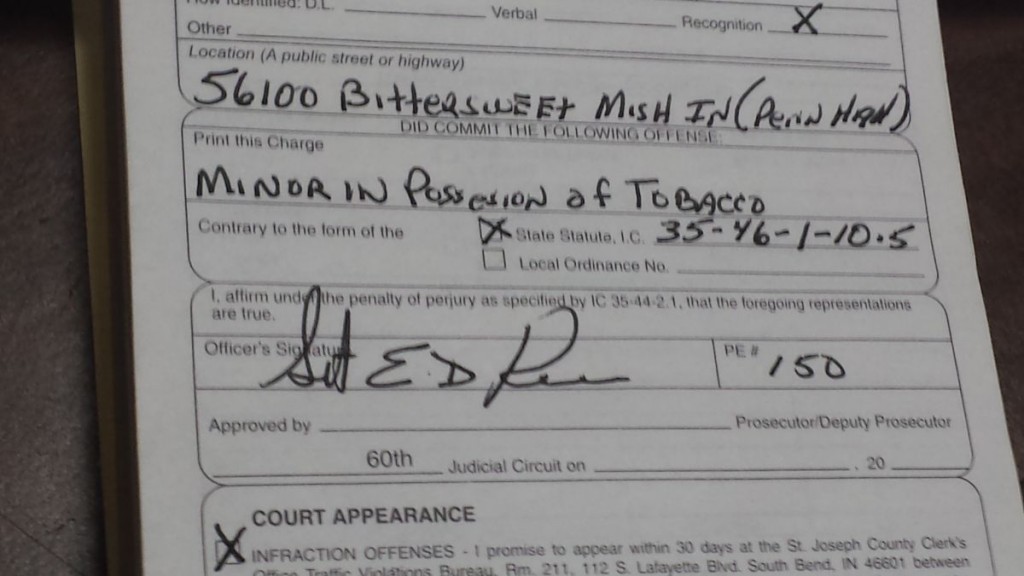 How Identified: D.L. Verbal Recognition X
Other
Location (A public street or highway)
56100 BittersweEt Mish IN (Penn High)
DID COMMIT THE FOLLOWING OFFENSE:
Print this Charge
MINOR IN Possesion of TOBACCO
Contrary to the form of the X State Statute, I.C. 35-46-1-10.5
Local Ordinance No.
I, affirm under the penalty of perjury as specified by IC 35-44-2.1, that the foregoing representations
are true.
Officer's Signature E.D. PE # 150
Approved by Prosecutor/Deputy Prosecutor
60th Judicial Circuit on , 20
COURT APPEARANCE
X INFRACTION OFFENSES - I promise to appear within 30 days at the St. Joseph County Clerk's
Office Traffic Violations Bureau, Rm. 211, 112 S. Lafayette Blvd. South Bend, IN 46601 between